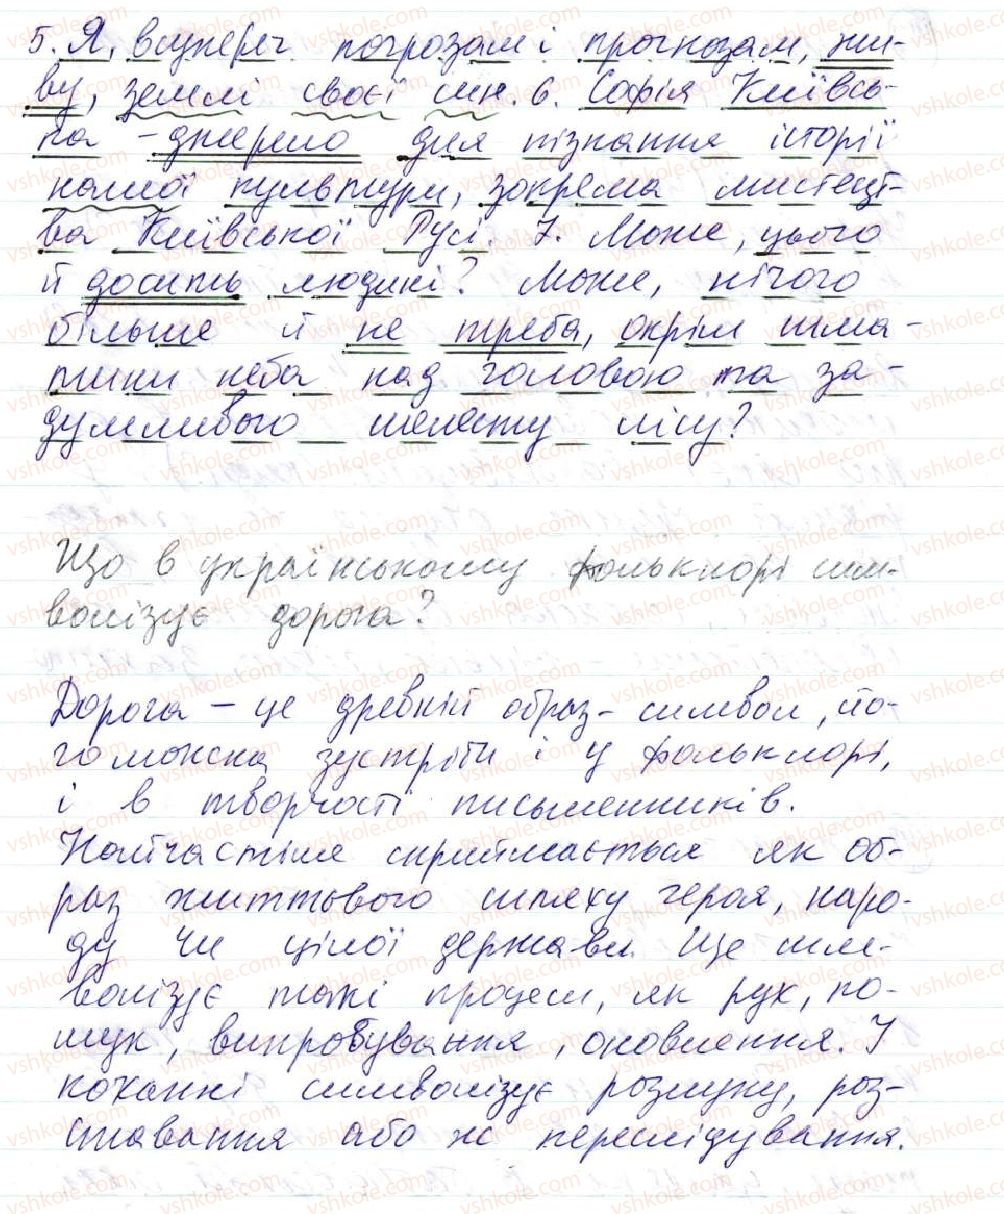 5. Я, всупереч погрозам і прогнозам, жи-
ву, землі своєї син. 6. Софія Київсь-
ка – джерело для пізнання історії
нашої культури, зокрема мистецт-
ва Київської Русі. 7. Може, цього
й досить людині? Може, нічого
більше й не треба, окрім шма-
тини неба над головою та за-
думливого шелесту лісу?
Що в українському фольклорі сим-
волізує дорога?
Дорога – це древній образ-символ, йо-
го можна зустріти і у фольклорі,
і в творчості письменників.
Найчастіше сприймається як об-
раз життєвого шляху героя, наро-
ду чи цілої держави. Ще сим-
волізує такі процеси, як рух, по-
шук, випробування, оновлення. У
коханні символізує розлуку, роз-
ставання або ж переслідування.